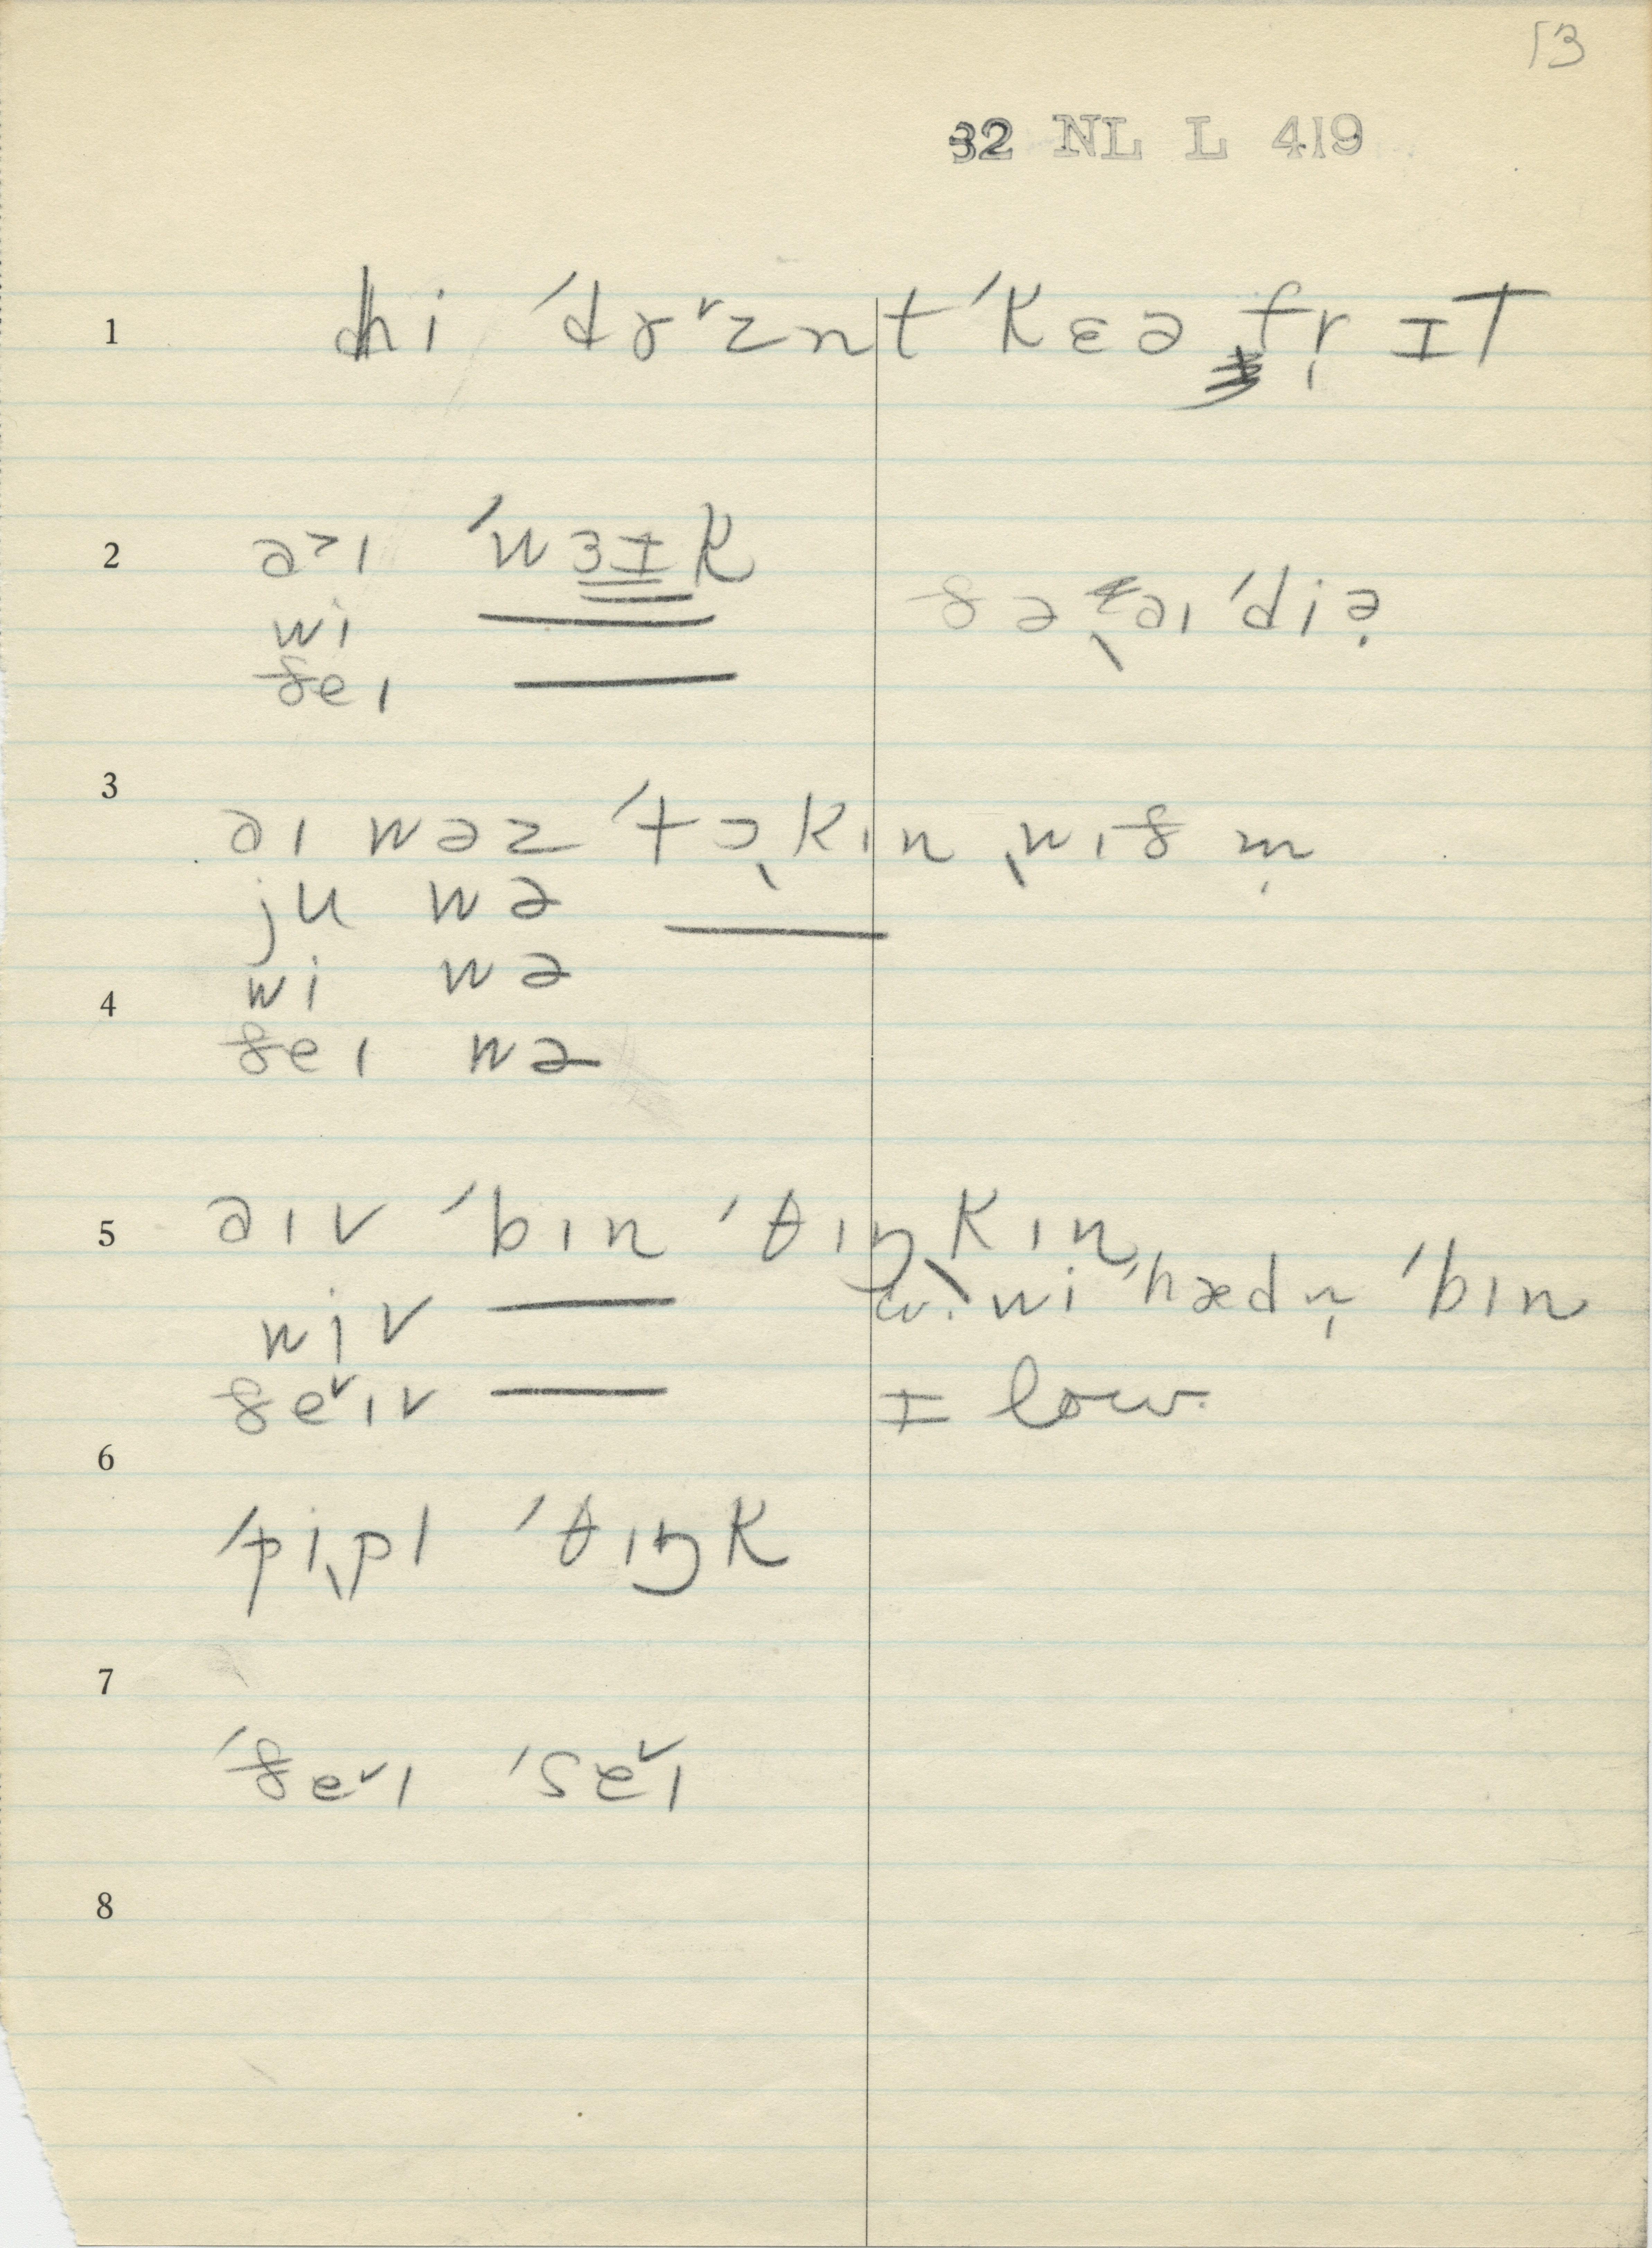 13
32 NL L 419
1 hi ˈdɤ˅znt ˈkɛə fr̩ ɪT
2 a˃ɪ ˈwɜɪk
wi
ðeɪ
ðə ˌaɪˈdiə̣
3 aɪ wəz ˈtɔˌkɪn ˌwɪð m̩
ju wə
wi wə
4
ðeɪ wə
5 aɪv ˈbɪn ˈθɪŋˌkɪn
wiv cv. wi ˈhædn̩ ˈbɪn
ðe˅ɪv ɪ low.
6
ˈpiˌpl ˈθɪŋk
7
ˈðe˅ɪ ˈse˅ɪ
8